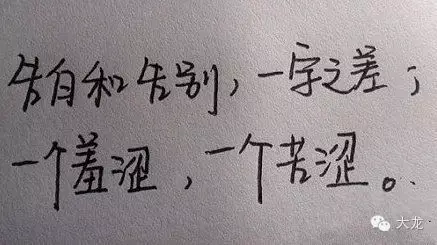 告白和告别，一字之差；
一个羞涩，一个苦涩。
大龙